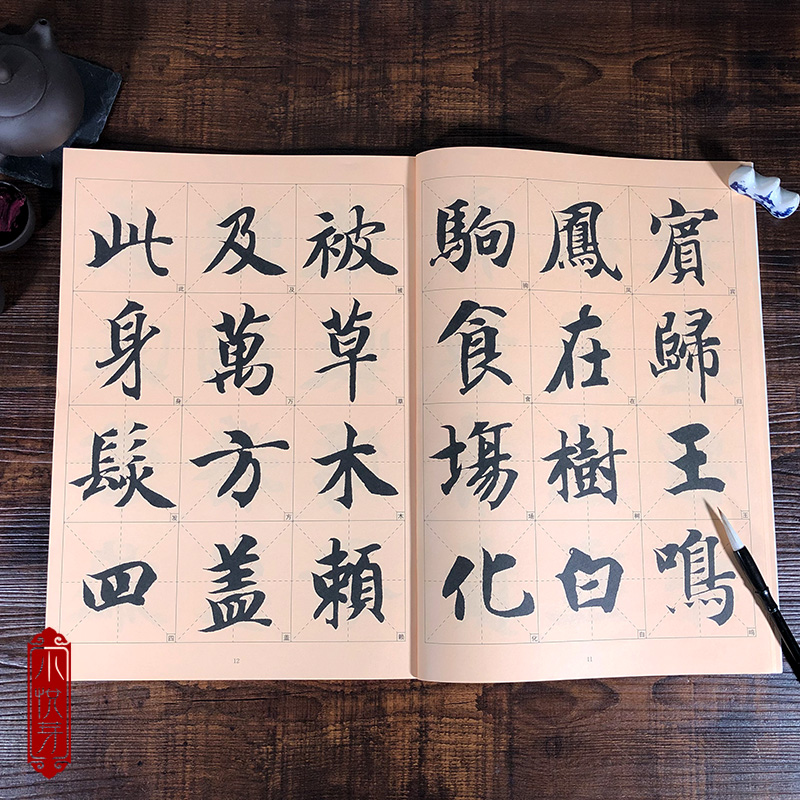 賓歸王鳴
鳳在樹白
駒食場化
11
被草木賴
及萬方盖
此身髮四
12